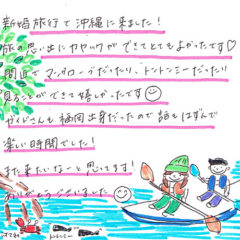 新婚旅行で沖縄に来ました！
旅の思い出にカヤックができてとてもよかったです♡
間近でマングローブだったり、トントンミーだったり
見ることができて嬉しかったです
ガイドさんも福岡出身だったので話もはずんで
楽しい時間でした！
また来たいなーと思ってます！
ありがとうございました